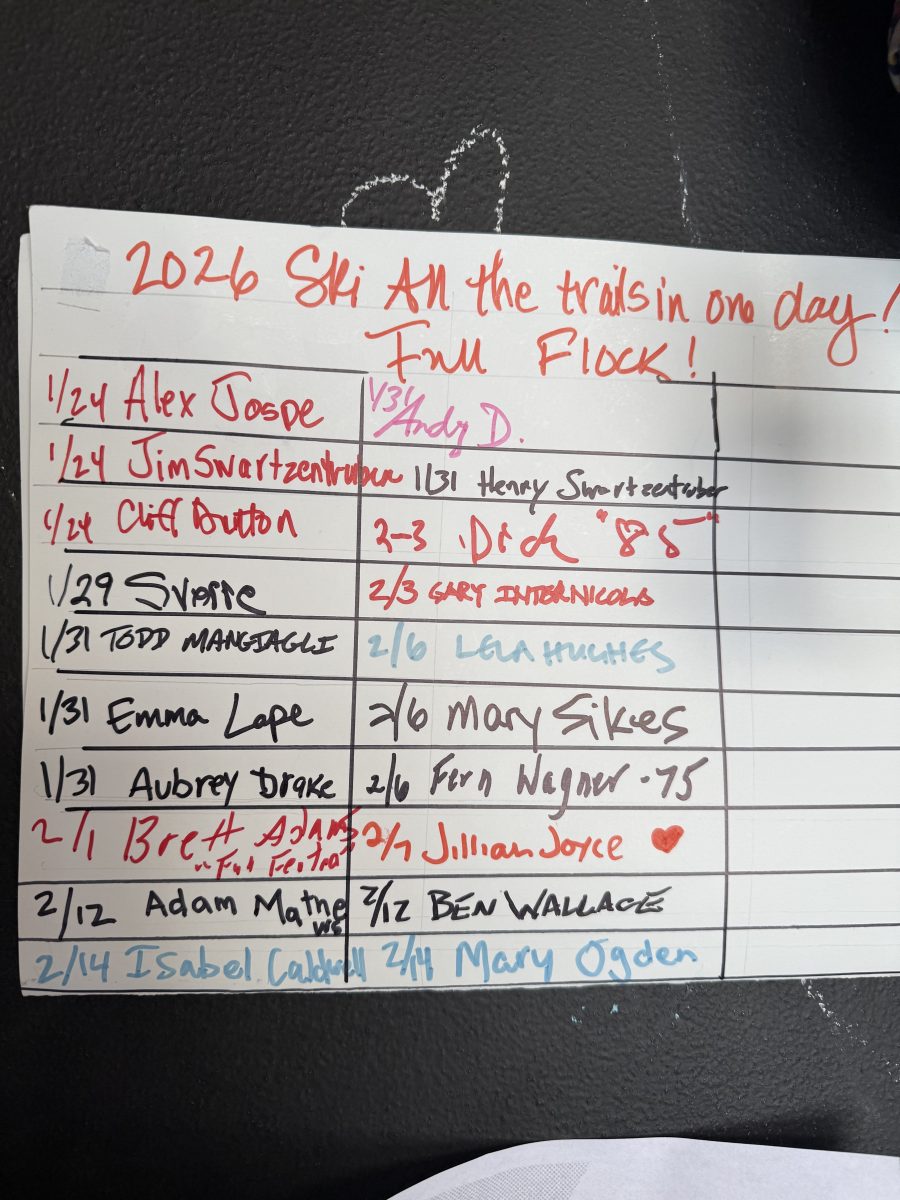 2026 Ski All the trails in one day!
Full Flock!
1/24 Alex Jospe
1/31 Andy D.
1/24 Jim Swartzentruber
1/31 Henry Swartzentruber
1/24 Cliff Button
2-3 Dick "85"
1/29 Sverre
2/3 GARY INTERNICOLA
1/31 TODD MANGIAGLI
2/6 LELA HUGHES
1/31 Emma Lape
2/6 Mary Sikes
1/31 Aubrey Drake
2/6 Fern Wagner - 75
2/1 Brett Adams
2/7 Jillian Joyce ❤
2/12 Adam Mathews
2/12 BEN WALLACE
2/14 Isabel Caldwell
2/14 Mary Ogden